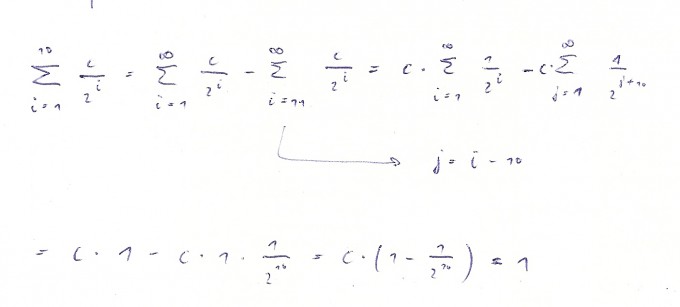 \sum_{i=1}^{10} \frac{c}{2^i} = \sum_{i=1}^{\infty} \frac{c}{2^i} - \sum_{i=11}^{\infty} \frac{c}{2^i} = c \cdot \sum_{i=1}^{\infty} \frac{1}{2^i} - c \cdot \sum_{j=1}^{\infty} \frac{1}{2^{j+10}}
j = i - 10
= c \cdot 1 - c \cdot 1 \cdot \frac{1}{2^{10}} = c \cdot (1 - \frac{1}{2^{10}}) = 1